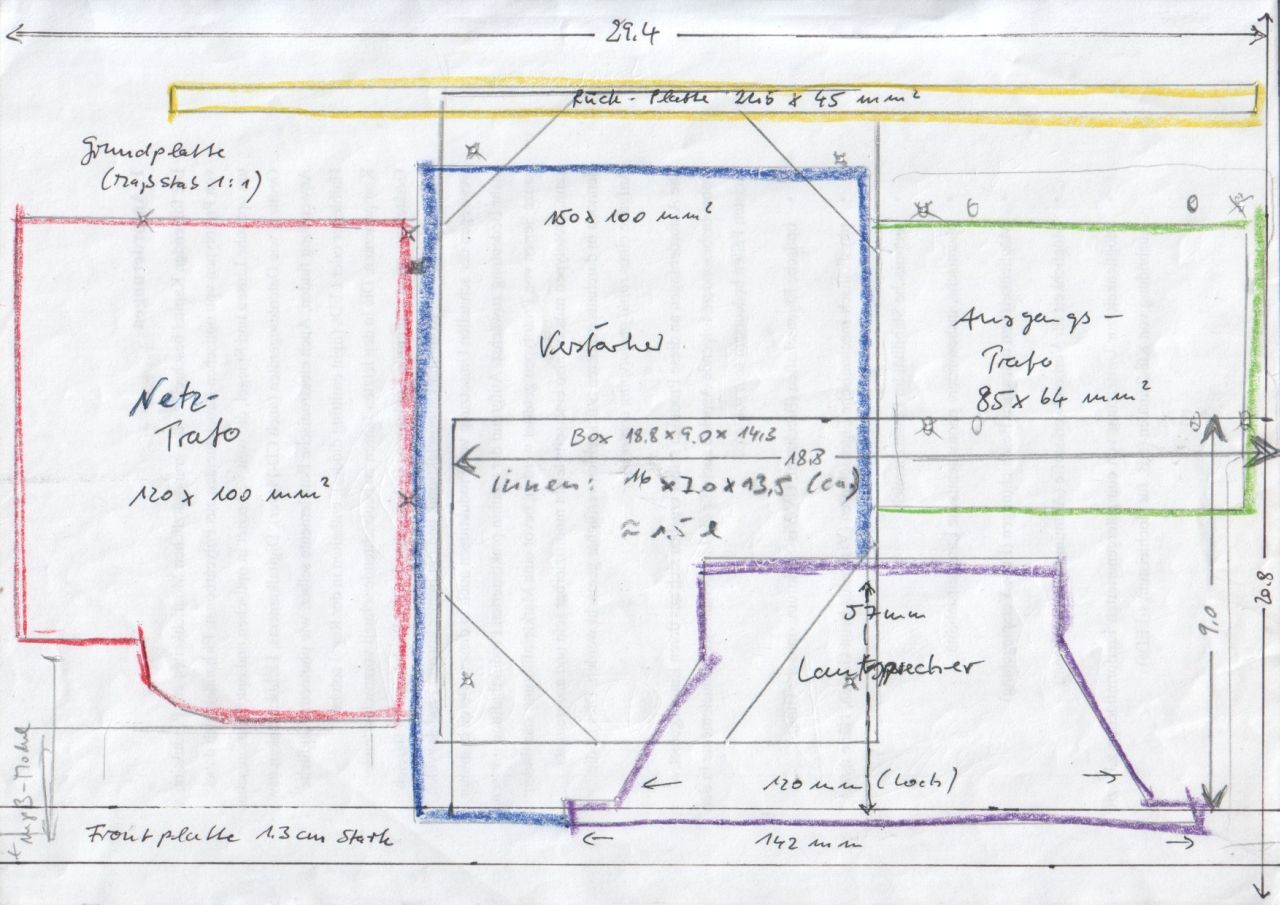 29.4
Rück-Platte 225 x 45 mm²
Grundplatte
(Maßstab 1:1)
150 x 100 mm²
Verstärker
Ausgangs-
Trafo
85 x 64 mm²
Netz-
Trafo
120 x 100 mm²
Box 18.8 x 9.0 x 14,3
18.8
innen: 16 x 7.0 x 13,5 (ca)
≈ 1.5 l
57 mm
Lautsprecher
9,0
20.8
120 mm (Loch)
142 mm
Frontplatte 1.3 cm stark